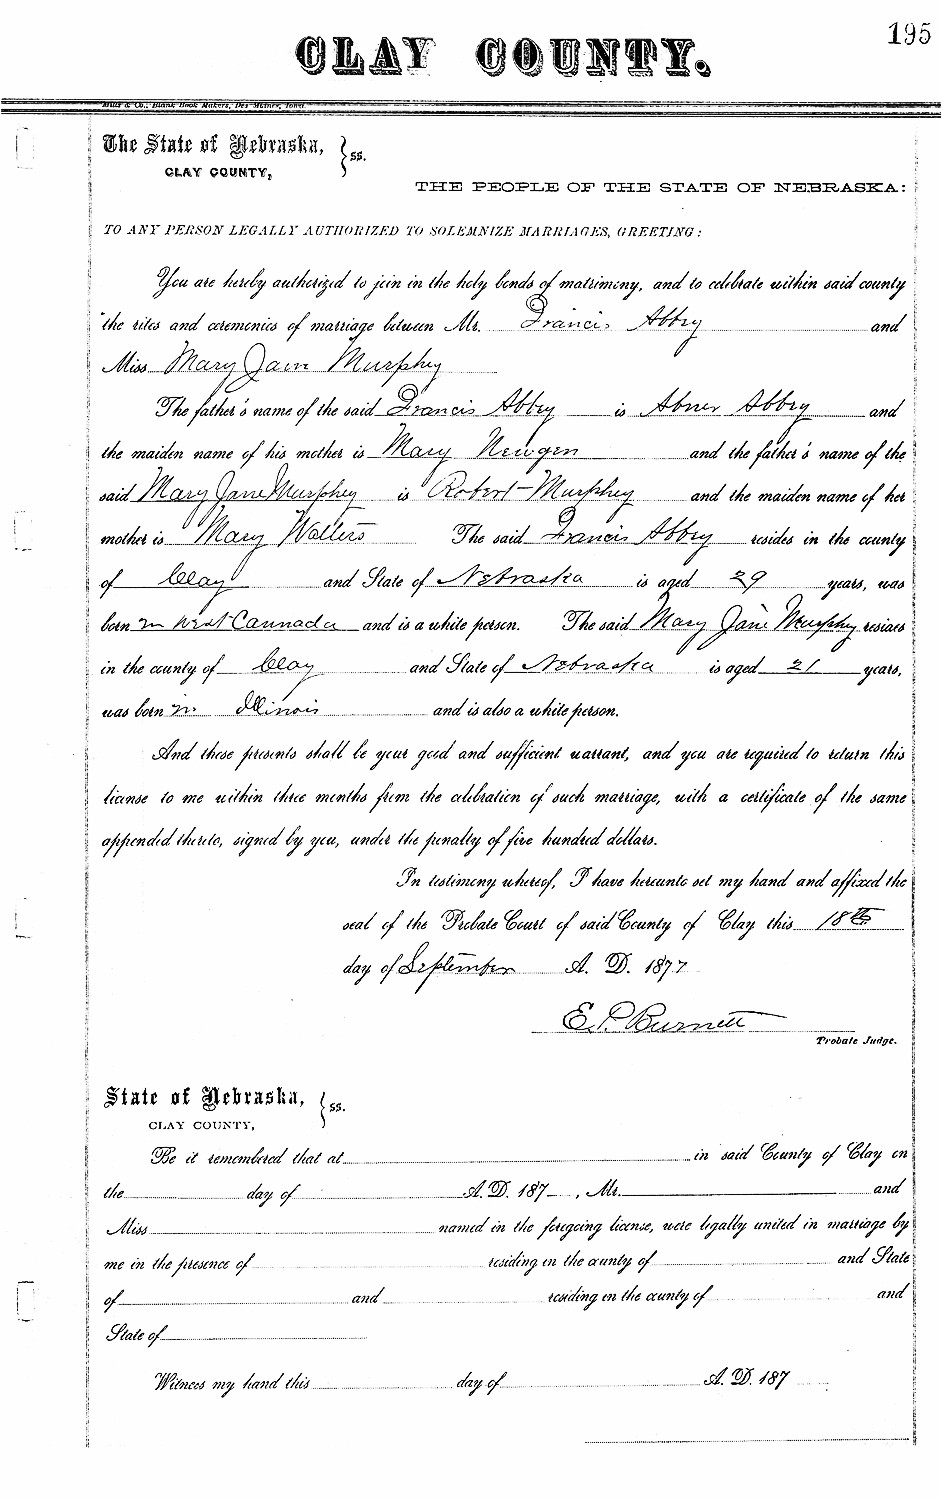 195
CLAY COUNTY.
Mills & Co., Blank Book Makers, Des Moines, Iowa.
The State of Nebraska, } ss.
CLAY COUNTY,
THE PEOPLE OF THE STATE OF NEBRASKA:
TO ANY PERSON LEGALLY AUTHORIZED TO SOLEMNIZE MARRIAGES, GREETING:
You are hereby authorized to join in the holy bonds of matrimony, and to celebrate within said county
the rites and ceremonies of marriage between Mr. Francis Abbey and
Miss Mary Jane Murphey
The father's name of the said Francis Abbey is Abner Abbey and
the maiden name of his mother is Mary Newgen and the father's name of the
said Mary Jane Murphey is Robert Murphey and the maiden name of her
mother is Mary Walters The said Francis Abbey resides in the county
of Clay and State of Nebraska is aged 29 years, was
born in West Cannada and is a white person. The said Mary Jane Murphey resides
in the county of Clay and State of Nebraska is aged 21 years,
was born in Illinois and is also a white person.
And these presents shall be your good and sufficient warrant, and you are required to return this
license to me within three months from the celebration of such marriage, with a certificate of the same
appended thereto, signed by you, under the penalty of five hundred dollars.
In testimony whereof, I have hereunto set my hand and affixed the
seal of the Probate Court of said County of Clay this 18th
day of September A. D. 1877
E. P. Burnett
Probate Judge.
State of Nebraska, } ss.
CLAY COUNTY,
Be it remembered that at in said County of Clay on
the day of A. D. 187 , Mr. and
Miss named in the foregoing license, were legally united in marriage by
me in the presence of residing in the county of and State
of and residing in the county of and
State of
Witness my hand this day of A. D. 187